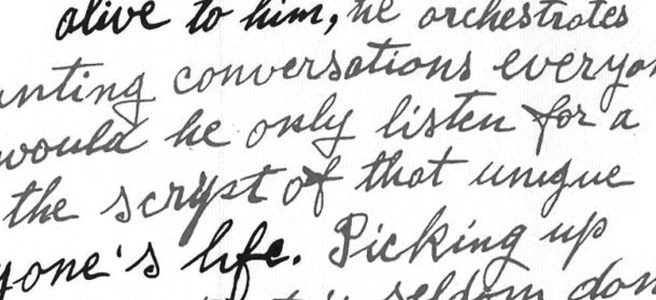 alive to him, he orchestrates
nting conversations everyon
would he only listen for a
the script of that unique
yone's life. Picking up
seldom don